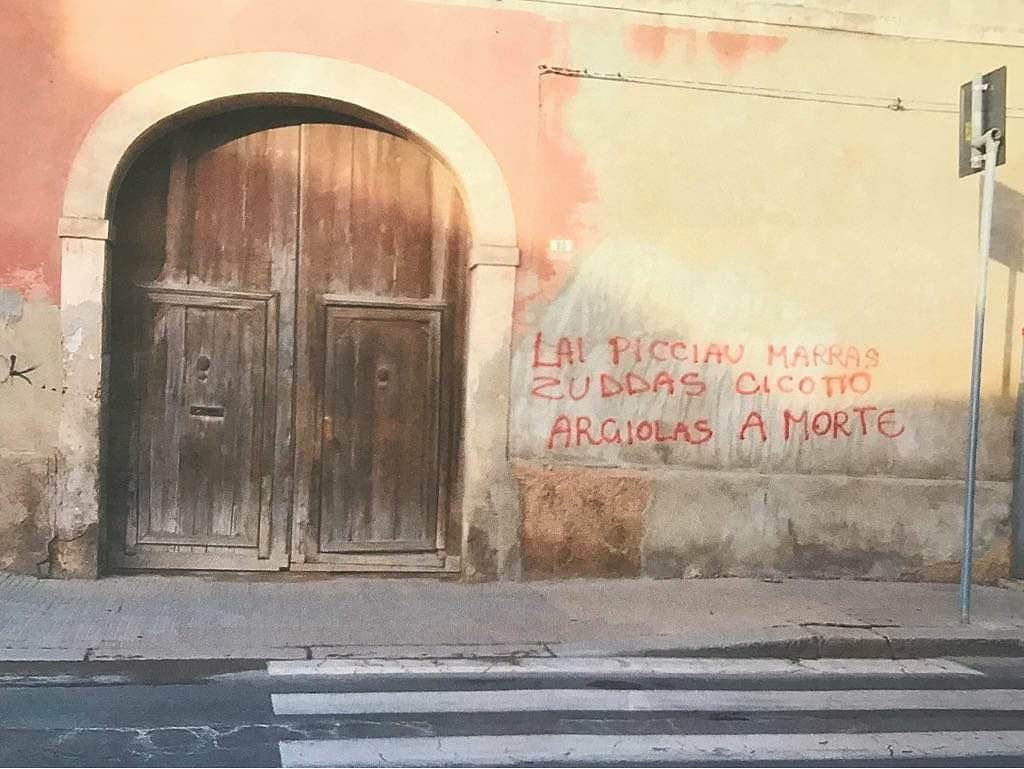 LAI PICCIAU MARRAS
ZUDDAS CICOTTO
ARGIOLAS A MORTE
OK